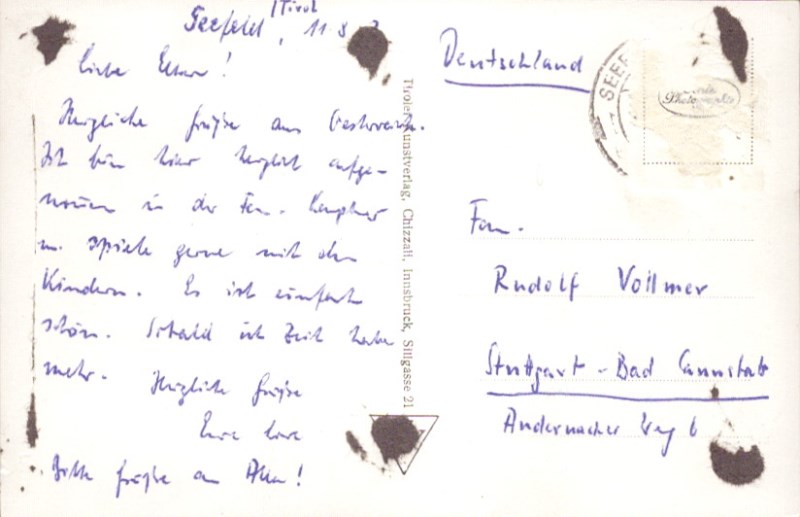 Seefeld / Tirol, 11. 8.
Liebe Eltern!
Herzliche Grüße aus Oesterreich.
Ich bin hier herzlich aufge-
nommen in der Fam.
u. spiele gerne mit den
Kindern. Es ist einfach
schön. Sobald ich Zeit habe
mehr. Herzliche Grüße
Eure
Bitte Grüße an Alle!
Tiroler Kunstverlag, Chizzali, Innsbruck, Sillgasse 21
Deutschland
SEEF
Photo
Fam.
Rudolf Vollmer
Stuttgart - Bad Cannstatt
Andernacher Weg 6